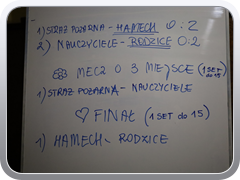 1) STRAŻ POŻARNA - HAMECH 0:2
2) NAUCZYCIELE - RODZICE 0:2
MECZ O 3 MIEJSCE (1 SET do 15)
1) STRAŻ POŻARNA - NAUCZYCIELE
♡ FINAŁ (1 SET do 15)
1) HAMECH - RODZICE